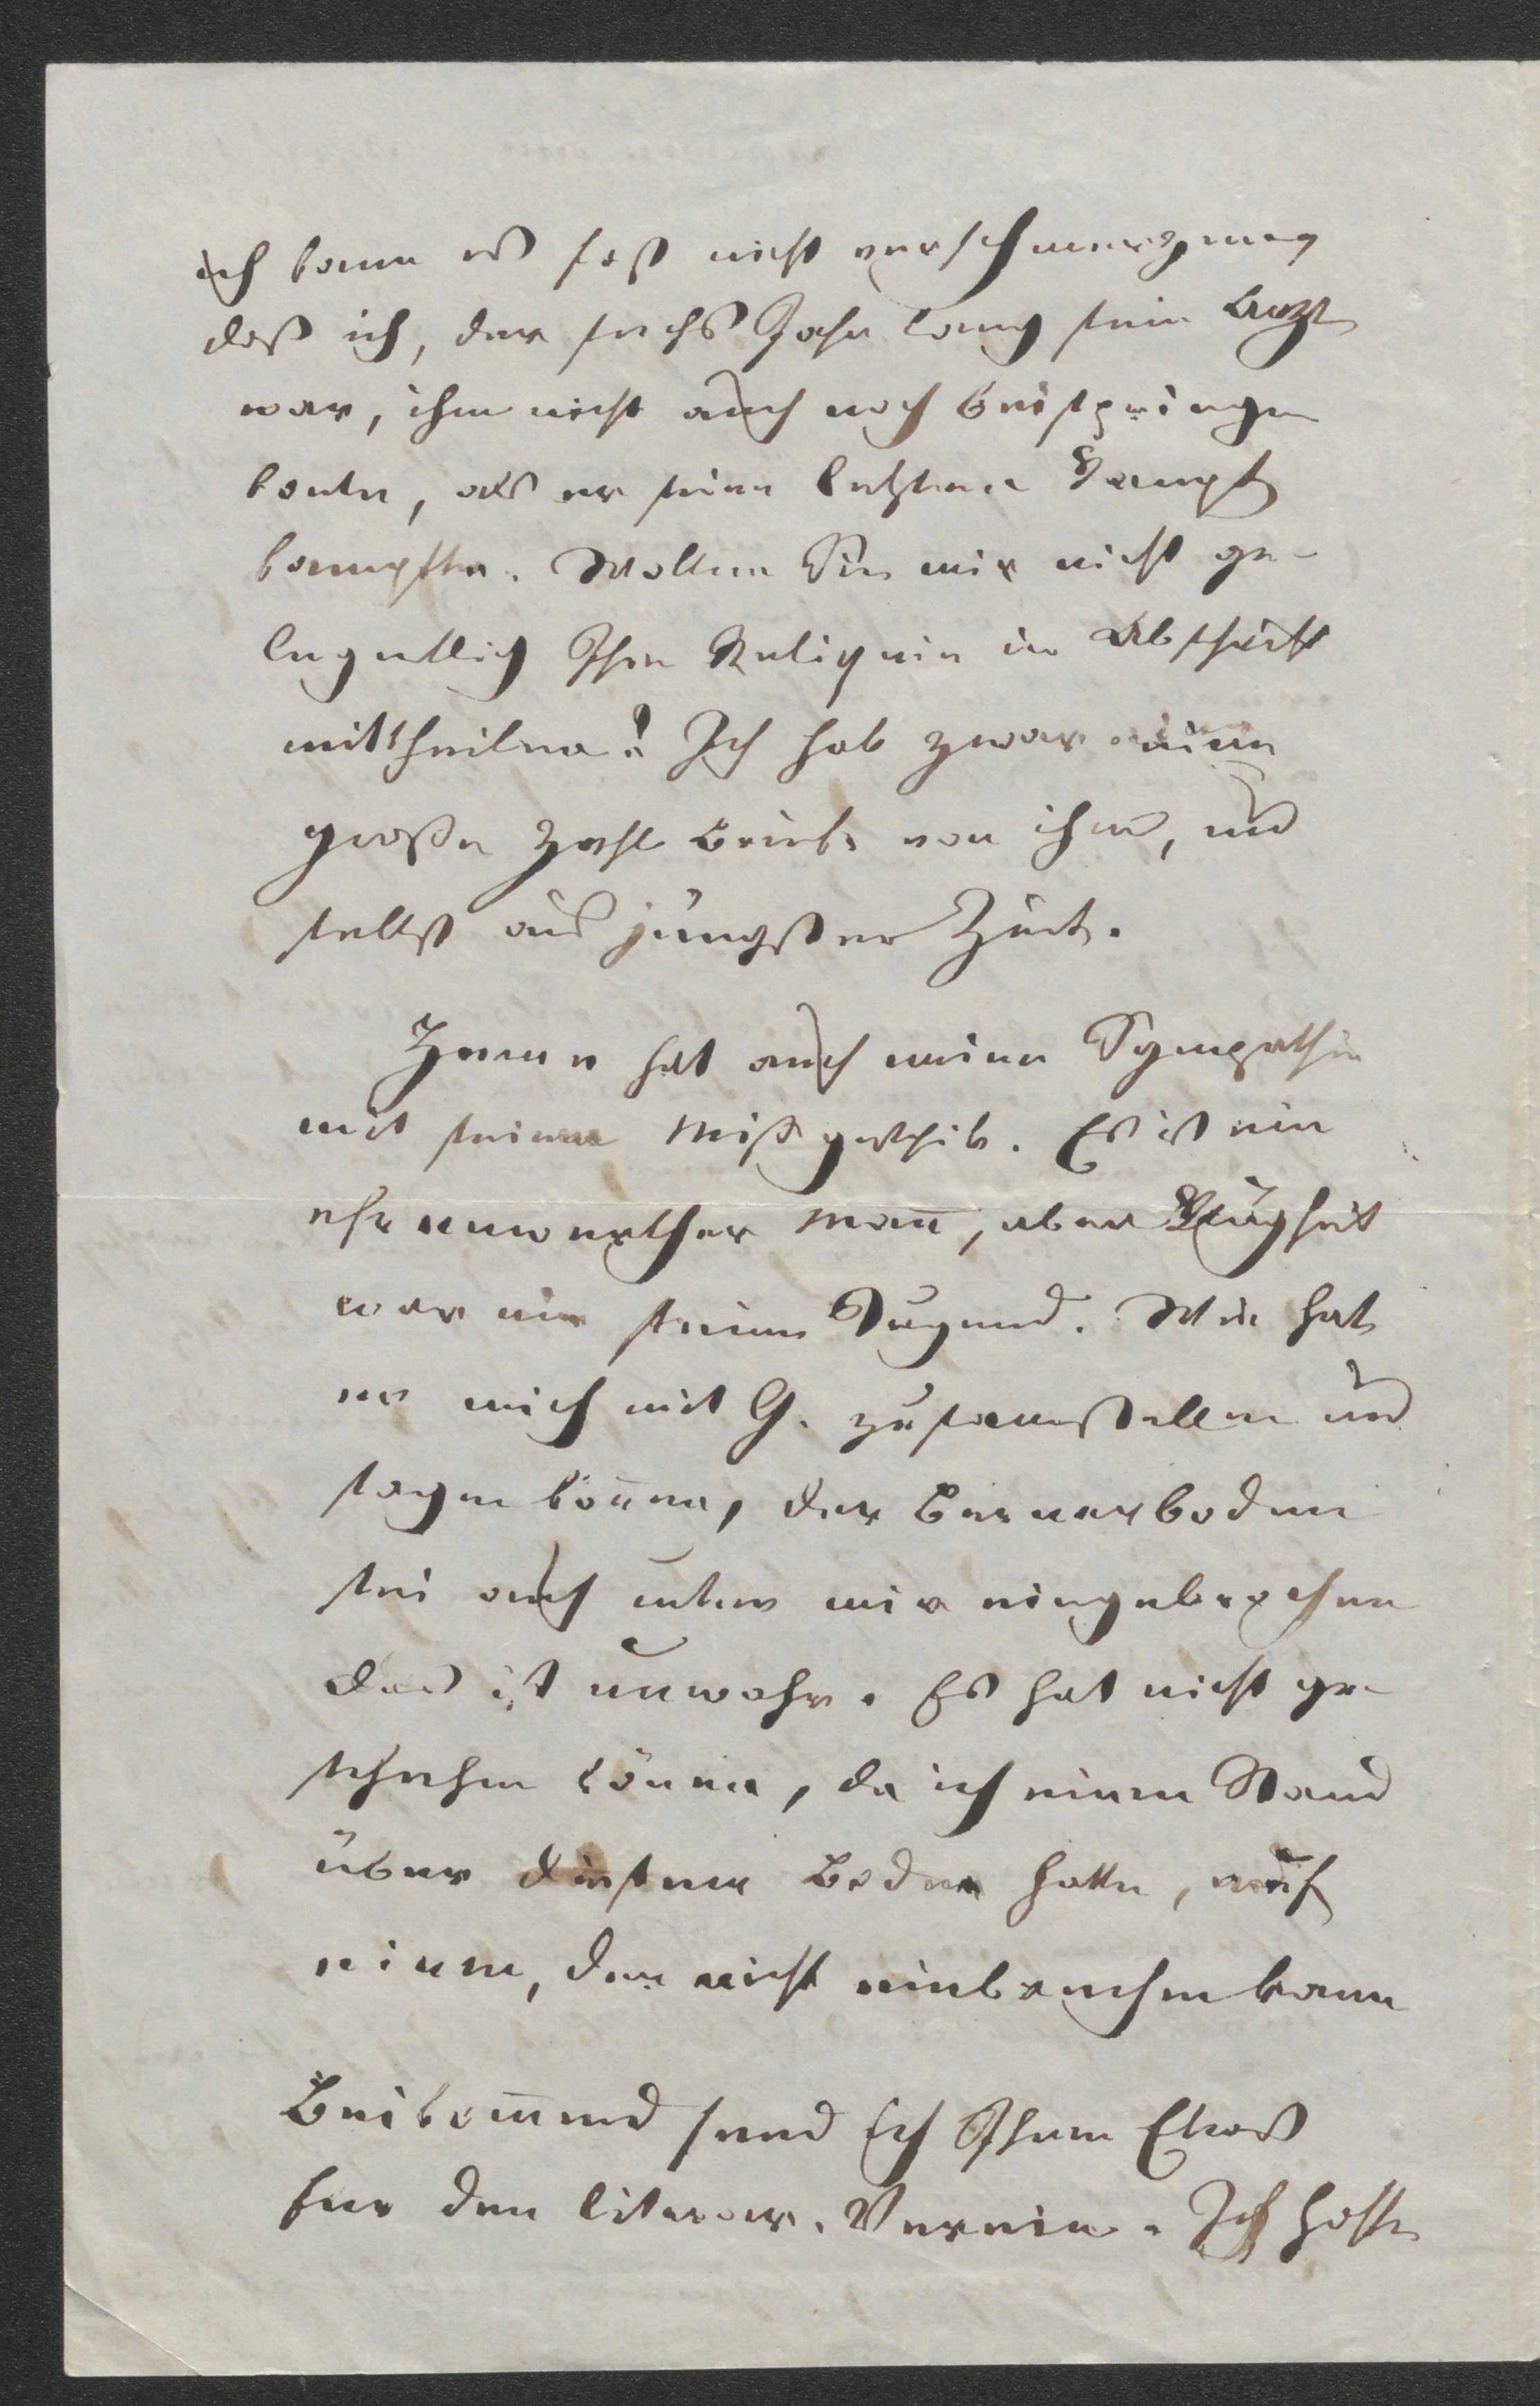 ich kann es fast nicht verschmerzen,
daß ich, der sechs Jahr lang sein Arzt
war, ihm nicht auch noch beispringen
konte, als er seinen lezten Kampf
kampfte. Wollen Sie mir nicht ge-
legentlich Ihre Reliquie in Abschrift
mittheilen? Ich hab zwar eine
große Zahl Briefe von ihm, und
selbst aus jüngster Zeit.
hat auch meine Sympathie
mit seinem Mißgeschik. Es ist ein
ehrenwerther Mañ, aber Klugheit
war nie seine Tugend. Wie hat
er mich mit G. zusamenstellen und
sagen köñen, der Bernerboden
sei auch unter mir eingebrochen
das ist unwahr. Es hat nicht ge-
schehen könen, da ich einen Stand
über diesem Boden hatte, auf
einem, der nicht einbrechen kann
Beikom̄end send ich Ihnen Etwas
für den literar. Verein. Ich hoffe